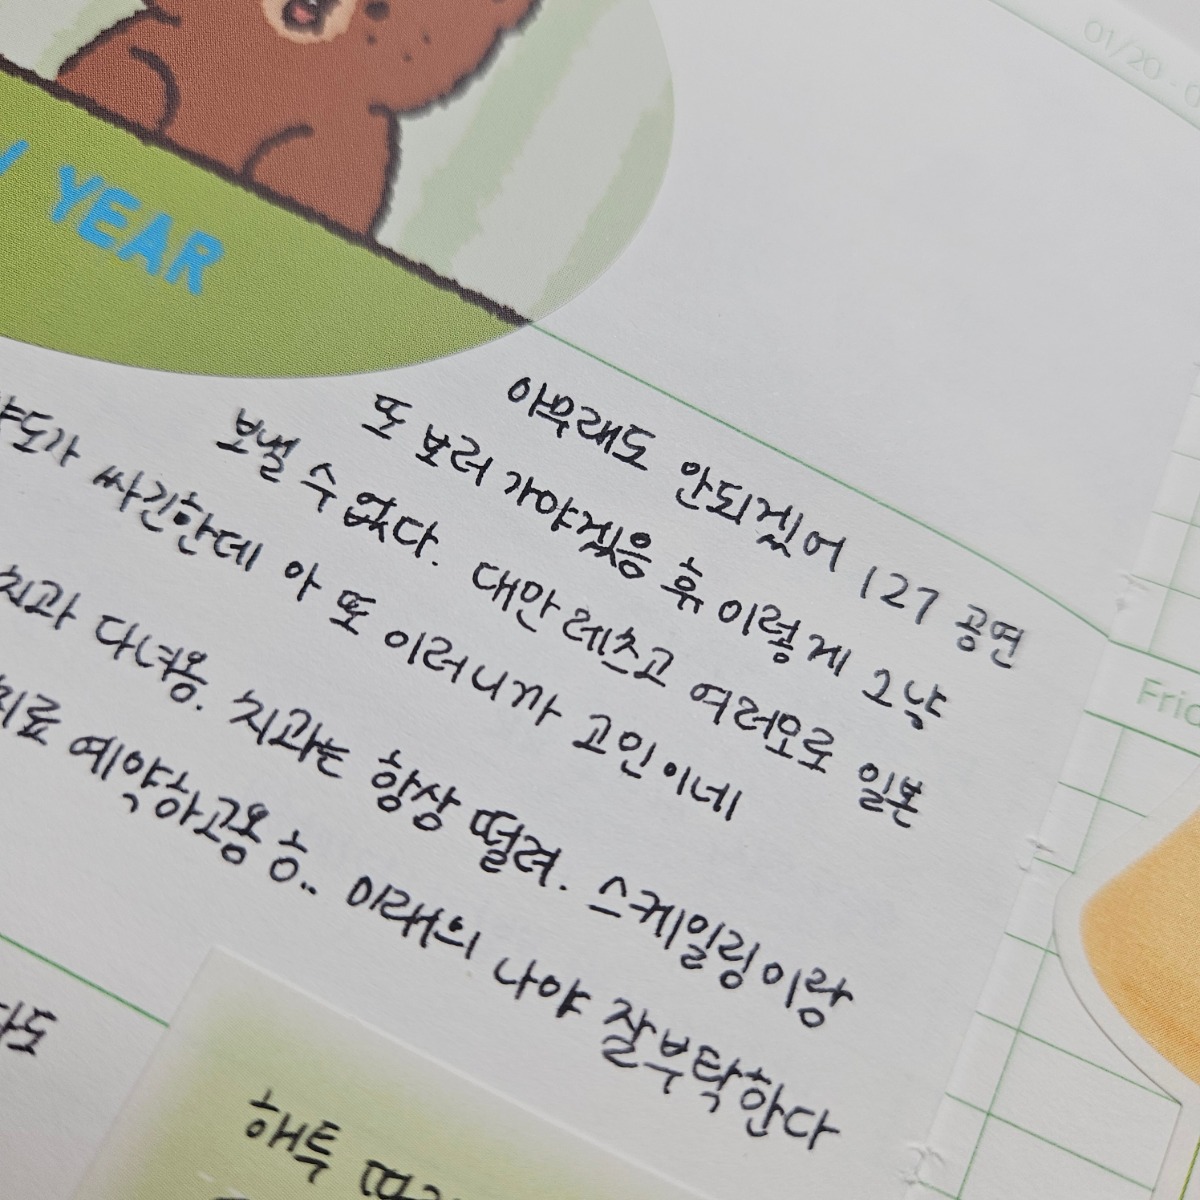 01/20 - 0
YEAR
아무래도 안되겠어 127 공연
또 보러 가야겠음 휴 이렇게 그냥
보낼 수 없다. 대만 레츠고 여러모로 일본
싸긴한데 아 또 이러니까 고민이네
치과 다녀옹. 치과는 항상 떨려. 스케일링이랑
예약하고옹 흐.. 미래의 나야 잘부탁한다
해투